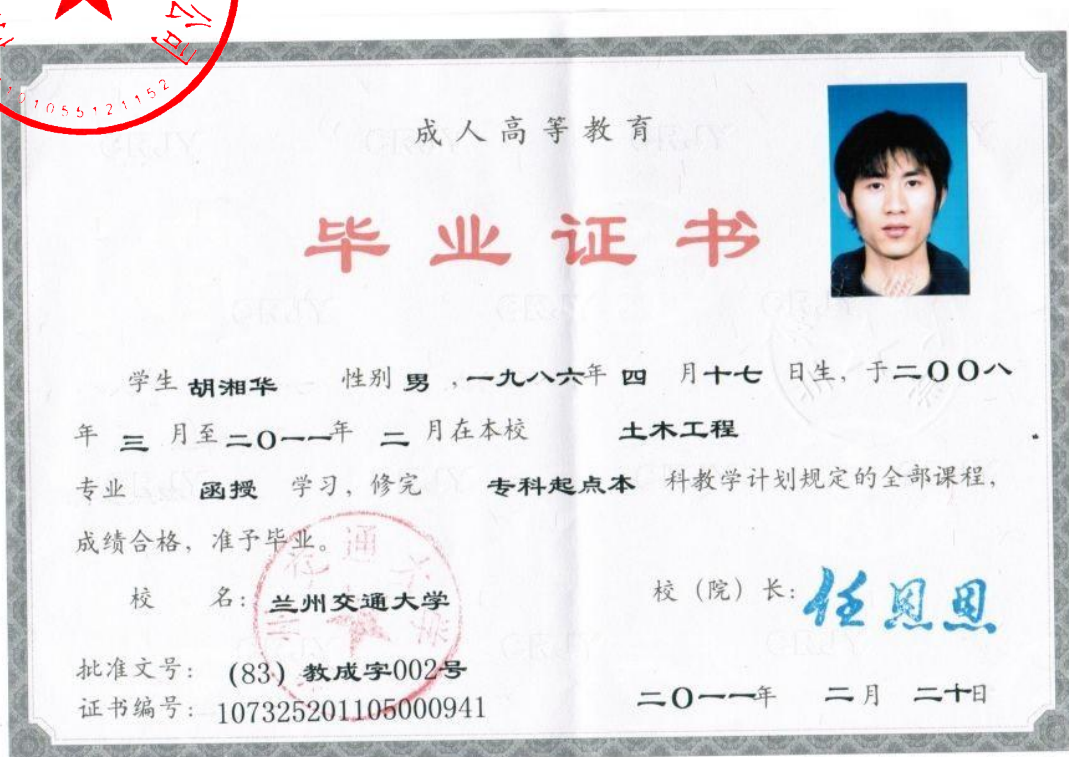 公司
1101055121152
成人高等教育
毕业证书
学生 胡湘华 性别 男 ,一九八六年 四 月十七 日生，于二〇〇八
年 三 月至二〇一一年 二 月在本校 土木工程
专业 函授 学习，修完 专科起点本 科教学计划规定的全部课程，
成绩合格，准予毕业。
校 名：兰州交通大学
校（院）长：任恩恩
批准文号： (83) 教成字002号
二〇一一年 二月 二十日
证书编号：107325201105000941